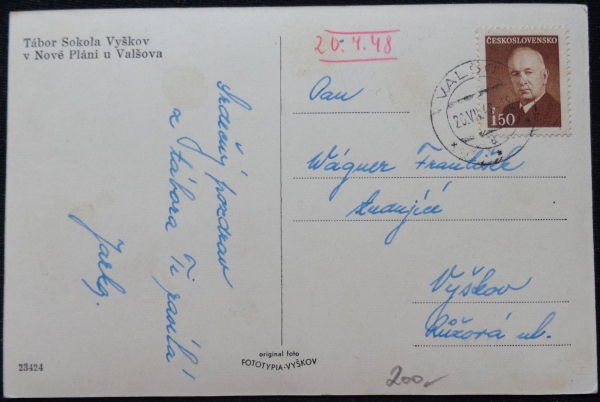 Tábor Sokola Vyškov
v Nové Pláni u Valšova
20.7.48
ČESKOSLOVENSKO
1.50
VALŠ
20.VII.4
Pan
Wágner František
Vyškov
Růžová ul.
Srdečný pozdrav
z tábora Ti posílá
Jarka.
original foto
FOTOTYPIA-VYŠKOV
23424
200,-